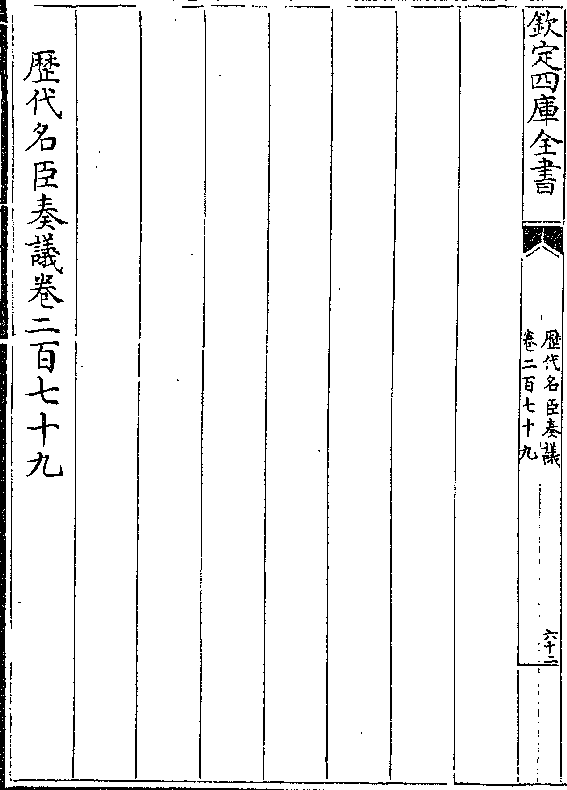 欽定四庫全書
歷代名臣奏議
卷二百七十九
六十二
歷代名臣奏議卷二百七十九